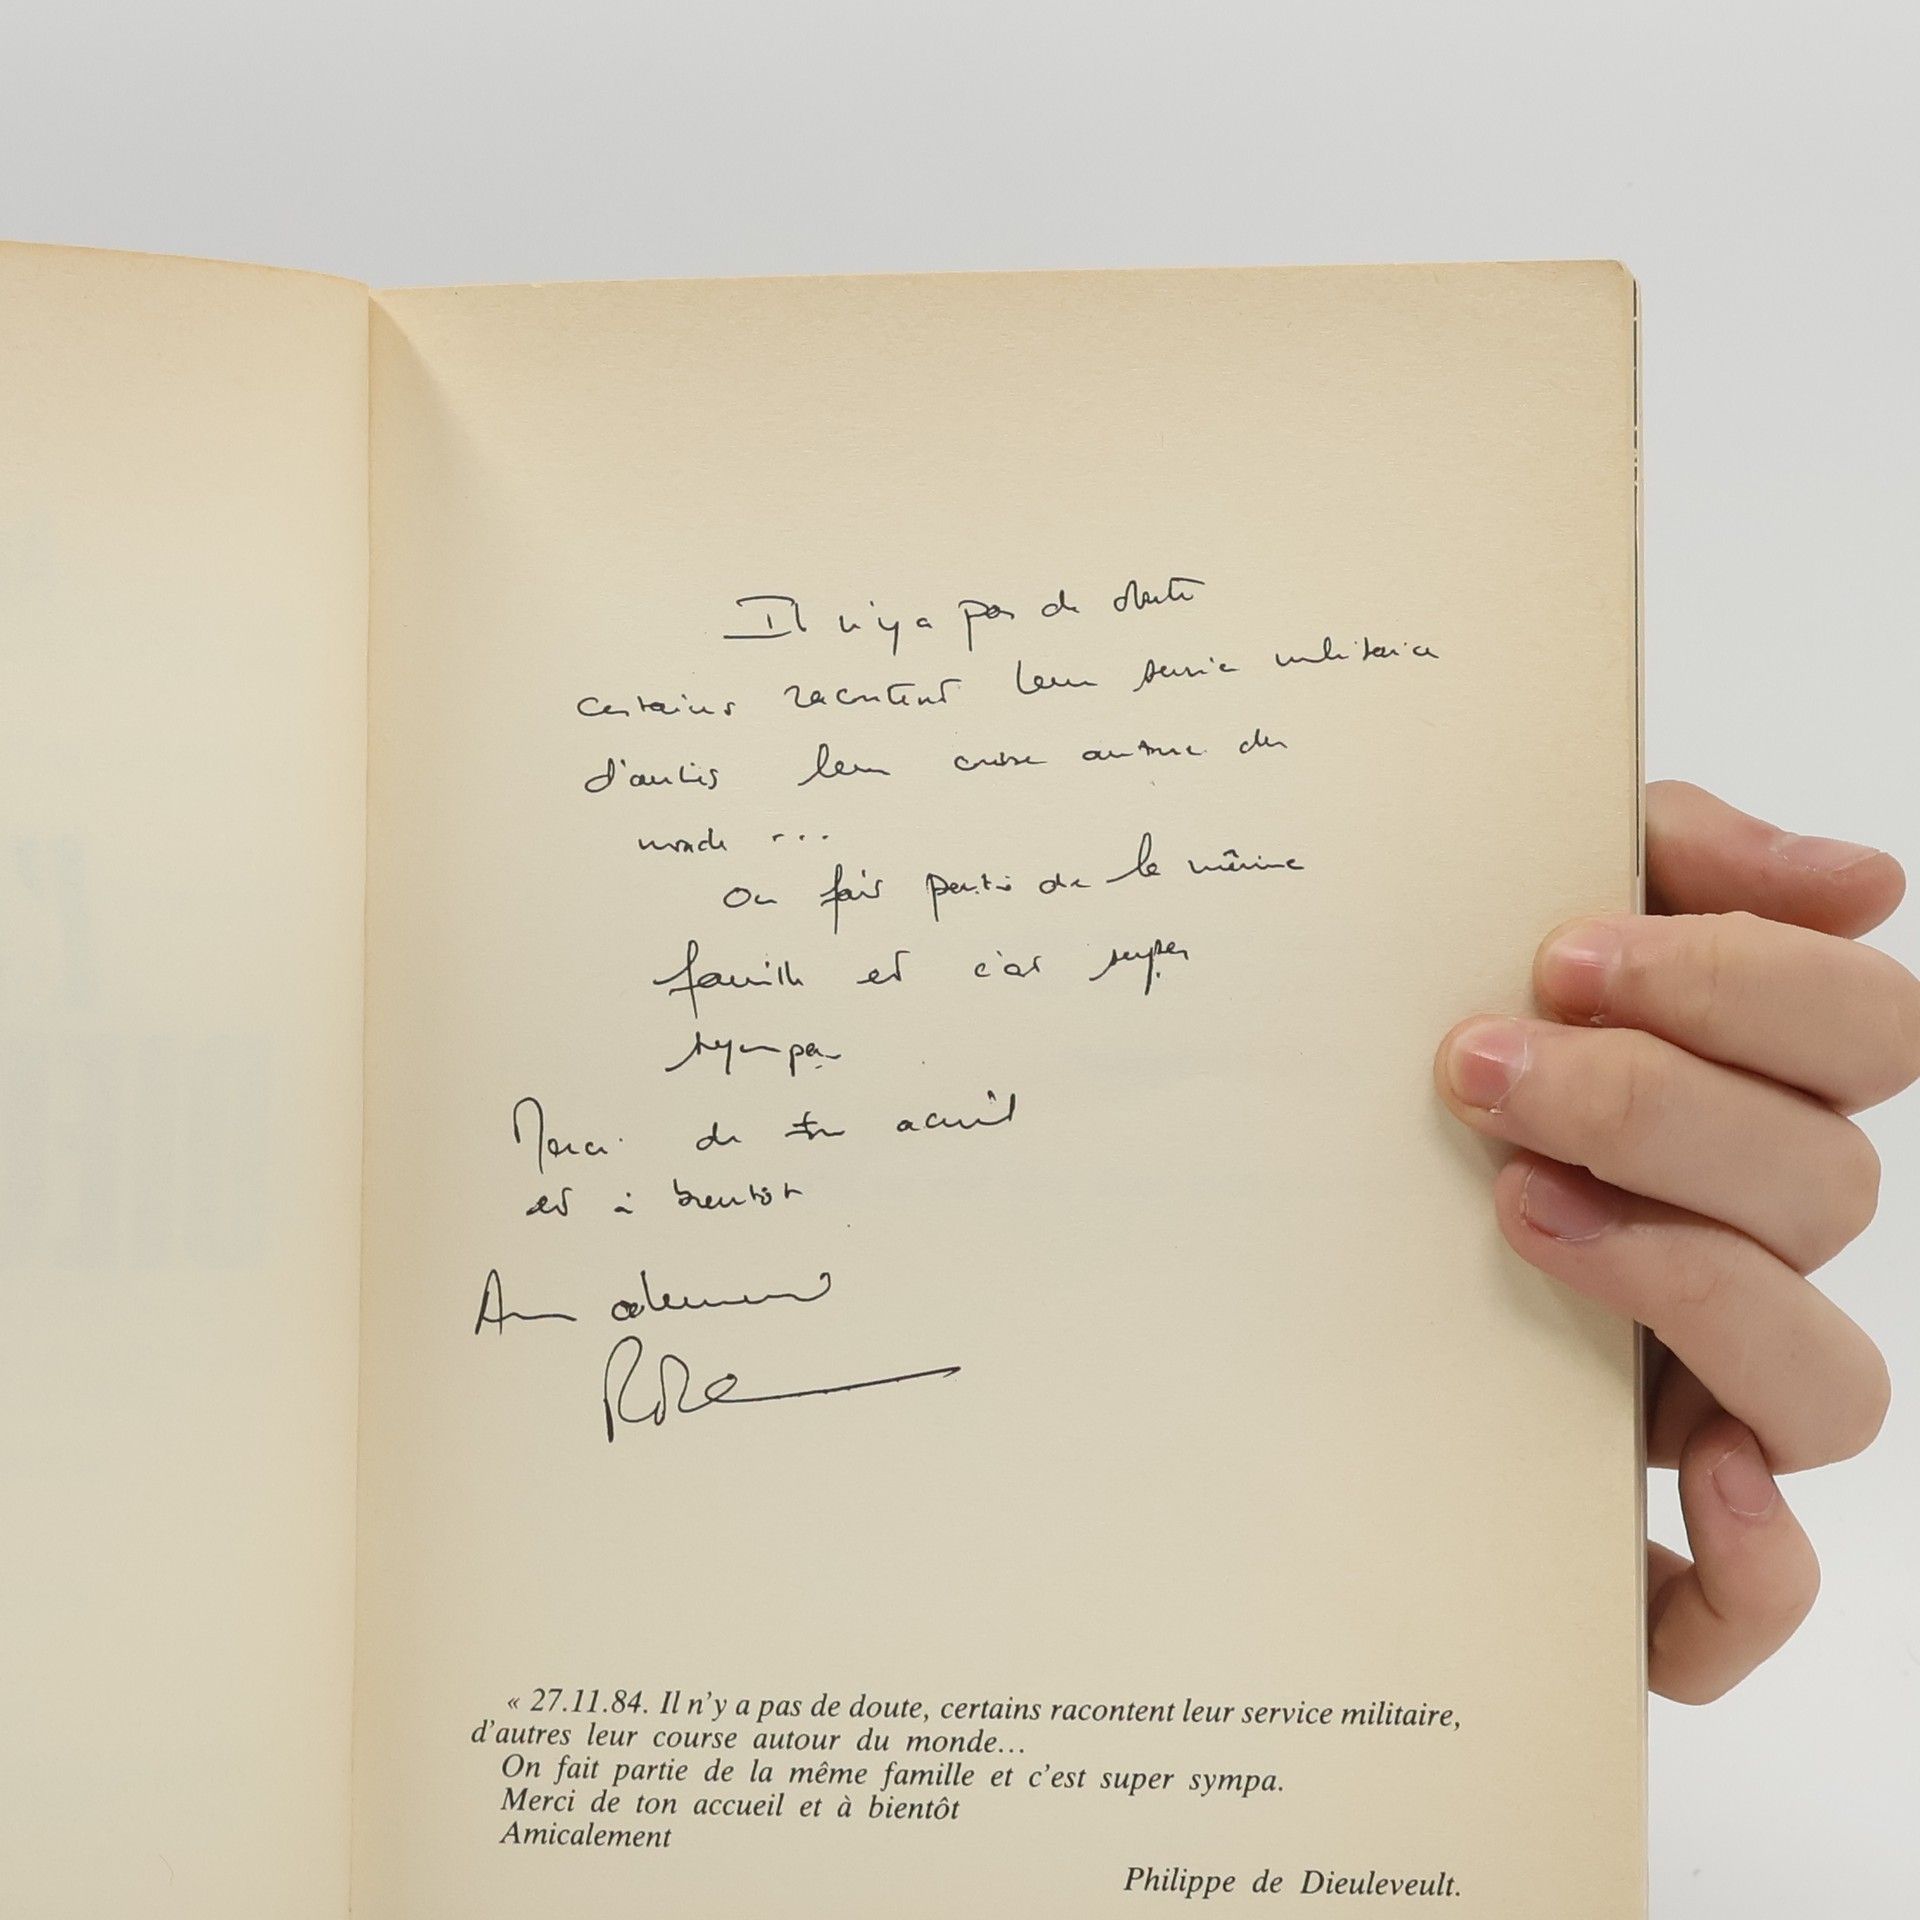 Il n'y a pas de doute
certains racontent leur service militaire
d'autres leur course autour du
monde ...
On fait partie de la même
famille et c'est super
sympa.
Merci de ton accueil
et à bientôt
Amicalement
« 27.11.84. Il n'y a pas de doute, certains racontent leur service militaire,
d'autres leur course autour du monde...
On fait partie de la même famille et c'est super sympa.
Merci de ton accueil et à bientôt
Amicalement
Philippe de Dieuleveult.